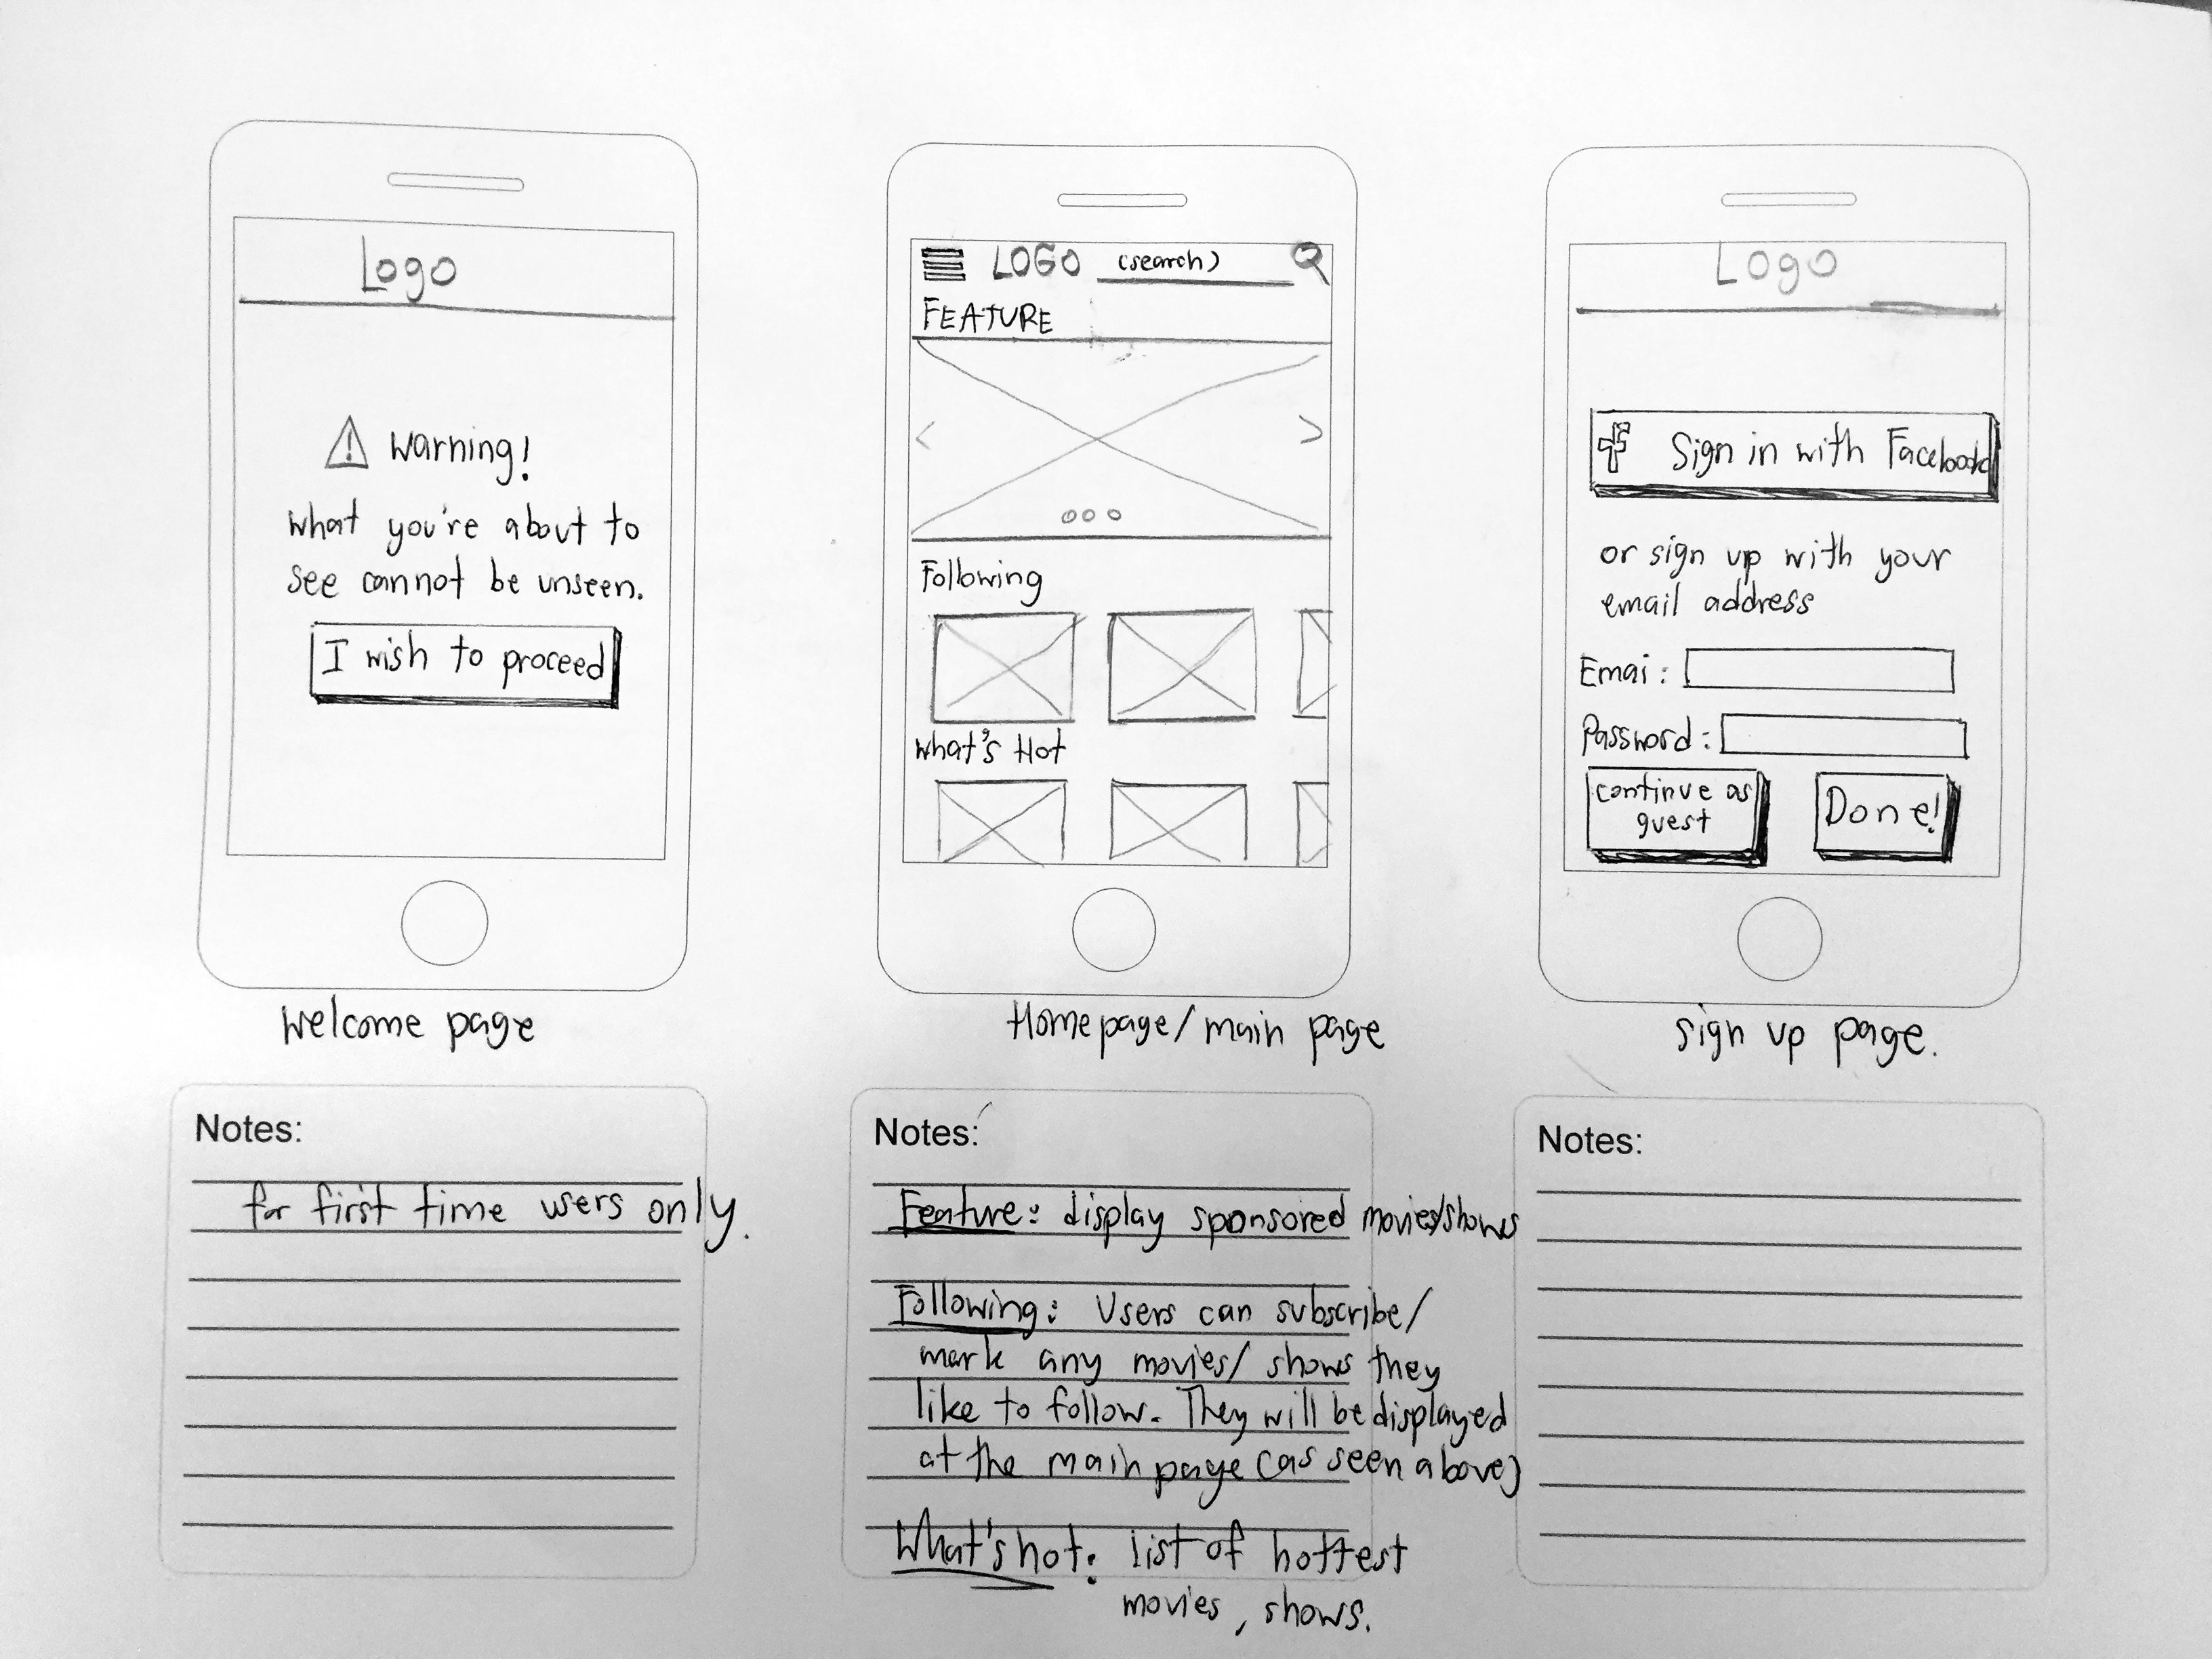 Logo
Warning!
What you're about to
see cannot be unseen.
I wish to proceed
Welcome page
Notes:
for first time users only.
LOGO (search)
FEATURE
Following
What's Hot
Homepage/main page
Notes:
Feature: display sponsored movies/shows
Following: Users can subscribe/
mark any movies/ shows they
like to follow. They will be displayed
at the main page (as seen above)
What's hot: list of hottest
movies, shows.
Logo
f Sign in with Facebook
or sign up with your
email address
Emai:
Password:
continue as
guest
Done!
sign up page.
Notes: